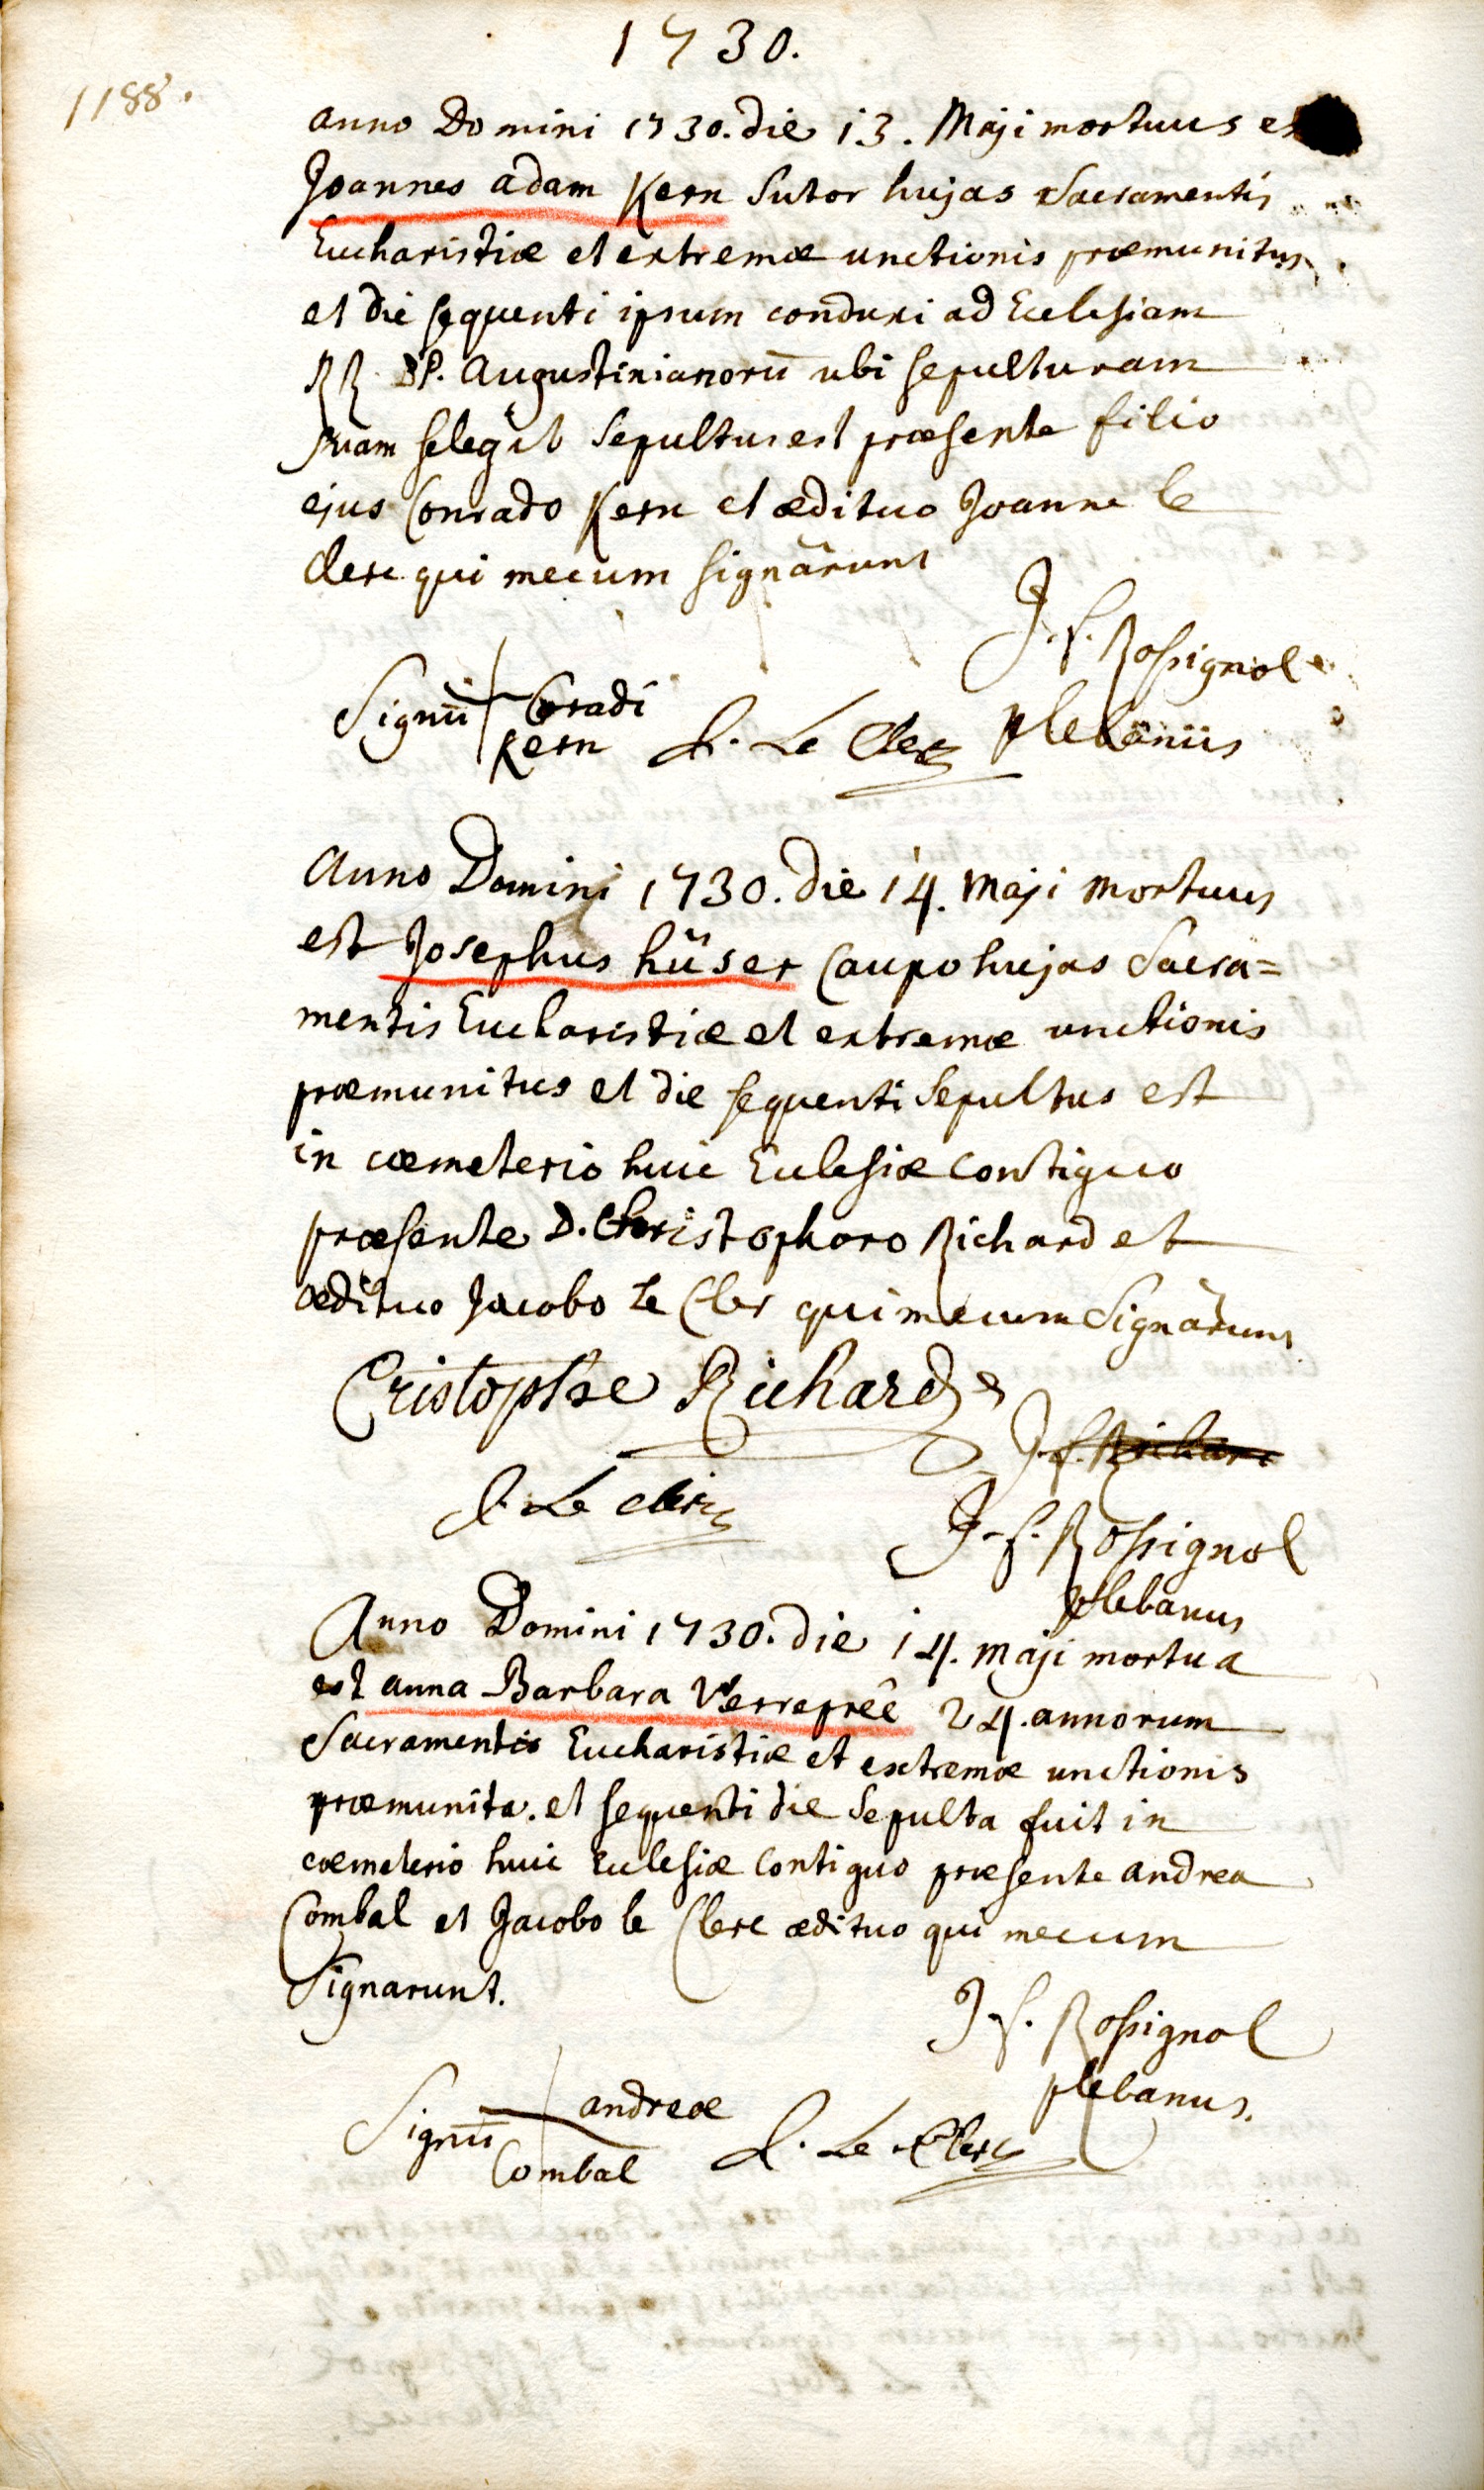 1730.
1188.
anno Domini 1730. die 13. Maji mortuus es
Joannes adam Kern Sutor hujas Sacramentis
Eucharistiæ et extremæ unctionis præmunitus
et die sequenti ipsum conduxi ad Ecclesiam
RR. PP. Augustinianorū ubi sepulturam
suam selegit sepultus est præsente filio
ejus Conrado Kern et ædituo Joanne le
Clerc qui mecum signârunt
J. f. Rossignol
Signū Coradi
Kern J. Le Clerc plebanus
Anno Domini 1730. die 14. Maji mortuus
est Josephus hüser Caupo hujas Sacra=
mentis Eucharistiæ et extremæ unctionis
præmunitus et die sequenti sepultus est
in cœmeterio huic Eclesiæ contiguo
præsente D. Christophoro Richard et
ædituo Jacobo Le Cler qui mecum Signârunt
Cristophe Richard
J. f. Richard
J. Le clerc
J. f. Rossignol
plebanus
Anno Domini 1730. die 14. Maji mortua
est anna Barbara Verreprêe 24. annorum
Sacramentis Eucharistiæ et extremæ unctionis
præmunita. et sequenti die Sepulta fuit in
cœmeterio huic Eclesiæ contiguo præsente andrea
Combal et Jacobo le Clerc ædituo qui mecum
Signarunt.
J. f. Rossignol
plebanus.
Signū andreæ
Combal J. Le Clerc